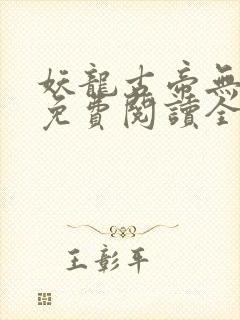 妖龍古帝無
免費閱讀全
王彰平